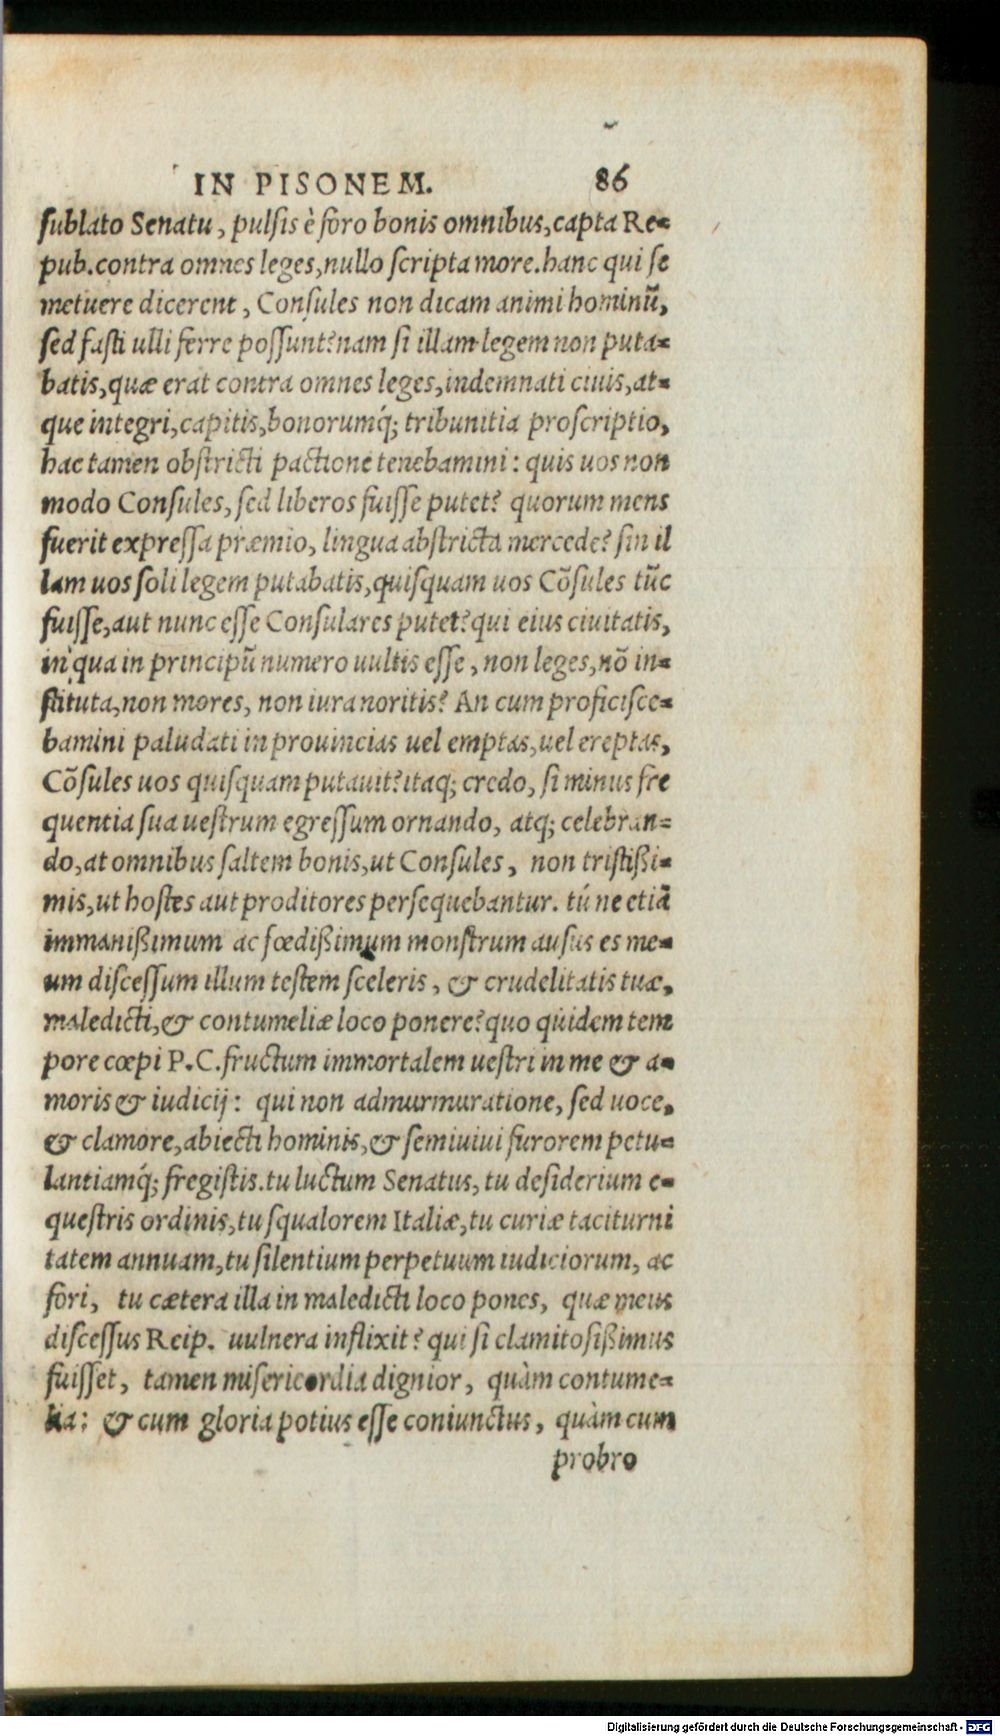 IN PISONEM. 86
ſublato Senatu, pulſis è foro bonis omnibus, capta Re=
pub. contra omnes leges, nullo ſcripta more. hanc qui ſe
metuere dicerent, Conſules non dicam animi hominū,
ſed faſti ulli ferre poſſunt? nam ſi illam legem non puta=
batis, quæ erat contra omnes leges, indemnati ciuis, at=
que integri, capitis, bonorumq́; tribunitia proſcriptio,
hac tamen obſtricti pactione tenebamini: quis uos non
modo Conſules, ſed liberos fuiſſe putet? quorum mens
fuerit expreſſa præmio, lingua abſtricta mercede? ſin il
lam uos ſoli legem putabatis, quiſquam uos Cōſules tūc
fuiſſe, aut nunc eſſe Conſulares putet? qui eius ciuitatis,
in qua in principū numero uultis eſſe, non leges, nō in=
ſtituta, non mores, non iura noritis? An cum proficiſce=
bamini paludati in prouincias uel emptas, uel ereptas,
Cōſules uos quiſquam putauit? itaq; credo, ſi minus fre
quentia ſua ueſtrum egreſſum ornando, atq; celebran=
do, at omnibus ſaltem bonis, ut Conſules, non triſtißi=
mis, ut hoſtes aut proditores perſequebantur. tú ne etiā
immanißimum ac fœdißimum monſtrum auſus es me=
um diſceſſum illum teſtem ſceleris, & crudelitatis tuæ,
maledicti, & contumeliæ loco ponere? quo quidem tem
pore cœpi P. C. fructum immortalem ueſtri in me & a=
moris & iudicij: qui non admurmuratione, ſed uoce,
& clamore, abiecti hominis, & ſemiuiui furorem petu=
lantiamq́; fregiſtis. tu luctum Senatus, tu deſiderium e=
queſtris ordinis, tu ſqualorem Italiæ, tu curiæ taciturni
tatem annuam, tu ſilentium perpetuum iudiciorum, ac
fori, tu cætera illa in maledicti loco pones, quæ meus
diſceſſus Reip. uulnera inflixit? qui ſi clamitoſißimus
fuiſſet, tamen miſericordia dignior, quàm contume=
lia: & cum gloria potius eſſe coniunctus, quàm cum
probro
Digitalisierung gefördert durch die Deutsche Forschungsgemeinschaft - DFG